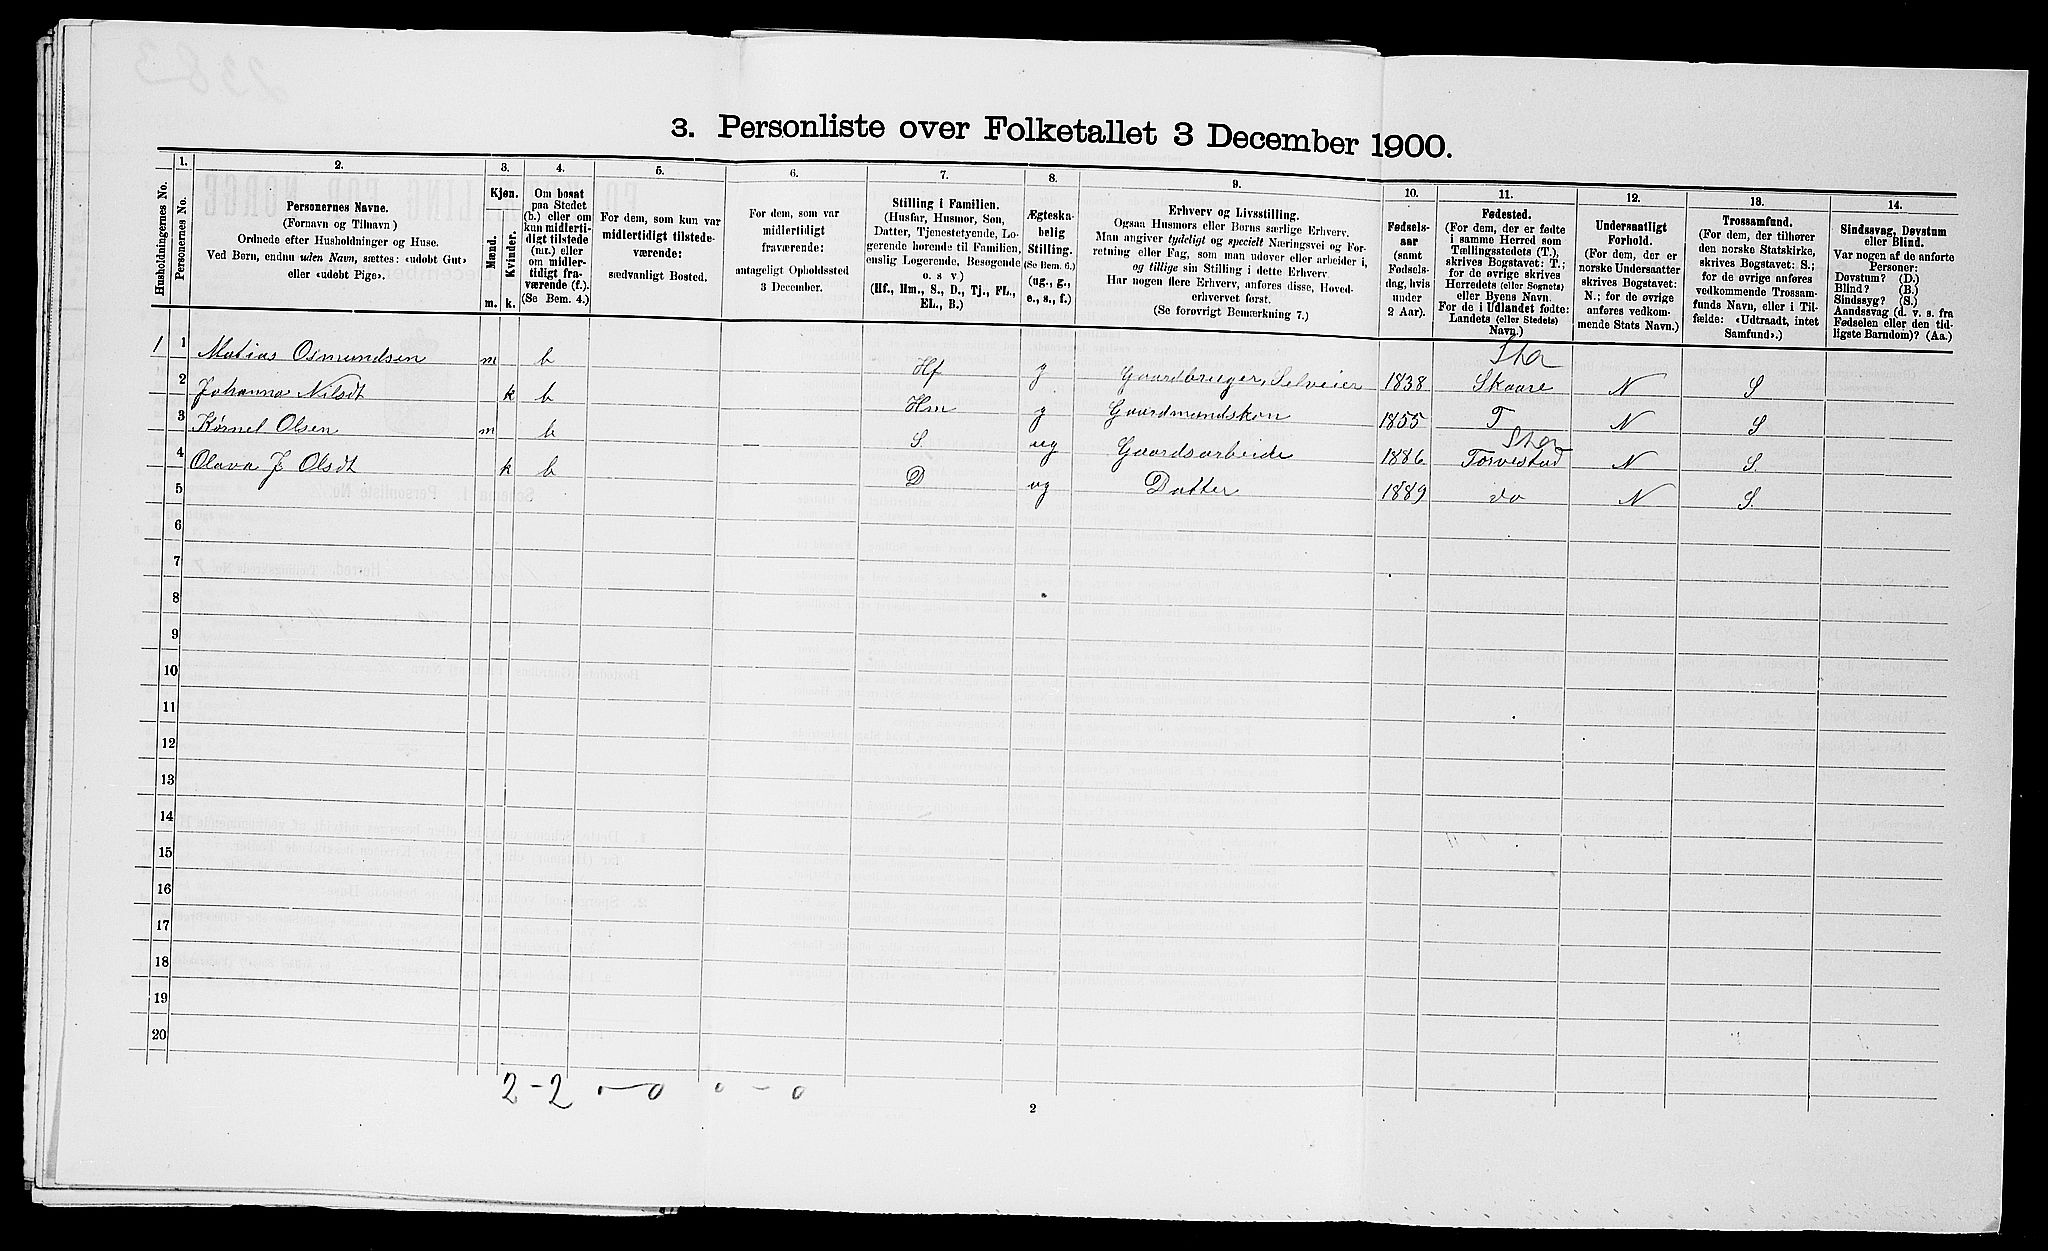 3. Personliste over Folketallet 3 December 1900.
Husholdningernes No.
1.
Personernes No.
2.
Personernes Navne.
(Fornavn og Tilnavn)
Ordnede efter Husholdninger og Huse.
Ved Børn, endnu uden Navn, sættes: «udøbt Gut»
eller «udøbt Pige».
3.
Kjøn.
Mænd.
Kvinder.
m.
k.
4.
Om bosat
paa Stedet
(b.) eller om
kun midlerti-
digt tilstede
(mt.) eller
om midler-
tidigt fra-
værende (f.).
(Se Bem. 4.)
5.
For dem, som kun var
midlertidigt tilstede-
værende:
sædvanligt Bosted.
6.
For dem, som var
midlertidigt
fraværende:
antageligt Opholdssted
3 December.
7.
Stilling i Familien.
(Husfar, Husmor, Søn,
Datter, Tjenestetyende, Lo-
gerende hørende til Familien,
enslig Logerende, Besøgende
o. s. v)
(Hf., Hm., S., D., Tj., FL.,
EL., B.)
8.
Ægteska-
belig
Stilling.
(Se Bem. 6.)
(ug., g.,
e., s., f.)
9.
Erhverv og Livsstilling.
Ogsaa Husmors eller Børns særlige Erhverv.
Man angiver tydeligt og specielt Næringsvei og For-
retning eller Fag, som man udøver eller arbeider i,
og tillige sin Stilling i dette Erhverv.
Har nogen flere Erhverv, anføres disse, Hoved-
erhvervet først.
(Se forøvrigt Bemærkning 7.)
10.
Fødsels-
aar
(samt
Fødsels-
dag, hvis
under
2 Aar).
11.
Fødested.
(For dem, der er fødte
i samme Herred som
Tællingsstedets (T.),
skrives Bogstavet: T.;
for de øvrige skrives
Herredets (eller Sognets)
eller Byens Navn.
For de i Udlandet fødte:
Landets (eller Stedets)
Navn.)
12.
Undersaatligt
Forhold.
(For dem, der er
norske Undersaatter
skrives Bogstavet:
N.; for de øvrige
anføres vedkom-
mende Stats Navn.)
13.
Trossamfund.
(For dem, der tilhører
den norske Statskirke,
skrives Bogstavet: S.;
for de øvrige anføres
vedkommende Trossam-
funds Navn, eller i Til-
fælde: «Udtraadt, intet
Samfund».)
14.
Sindssvag, Døvstum
eller Blind.
Var nogen af de anførte
Personer:
Døvstum? (D.)
Blind? (B.)
Sindssyg? (S.)
Aandssvag (d. v. s. fra
Fødselen eller den tid-
ligste Barndom)? (Aa.)
1 1 Matias Osmundsen m b Hf g Gaardbruger, Selveier 1838 Skaare N S
2 Johanna Nilsdt k b Hm g Gaardmandskon 1855 T N S
3 Kornel Olsen m b S. ug Gaardsarbeide 1886 Torvestad N S.
4 Olava J Olsdt k b D ug Datter 1889 do N S.
5
6
7
8
9
10
11
12
13
14
15
16
17
18
19
20
2-2 0-0 0-0
2